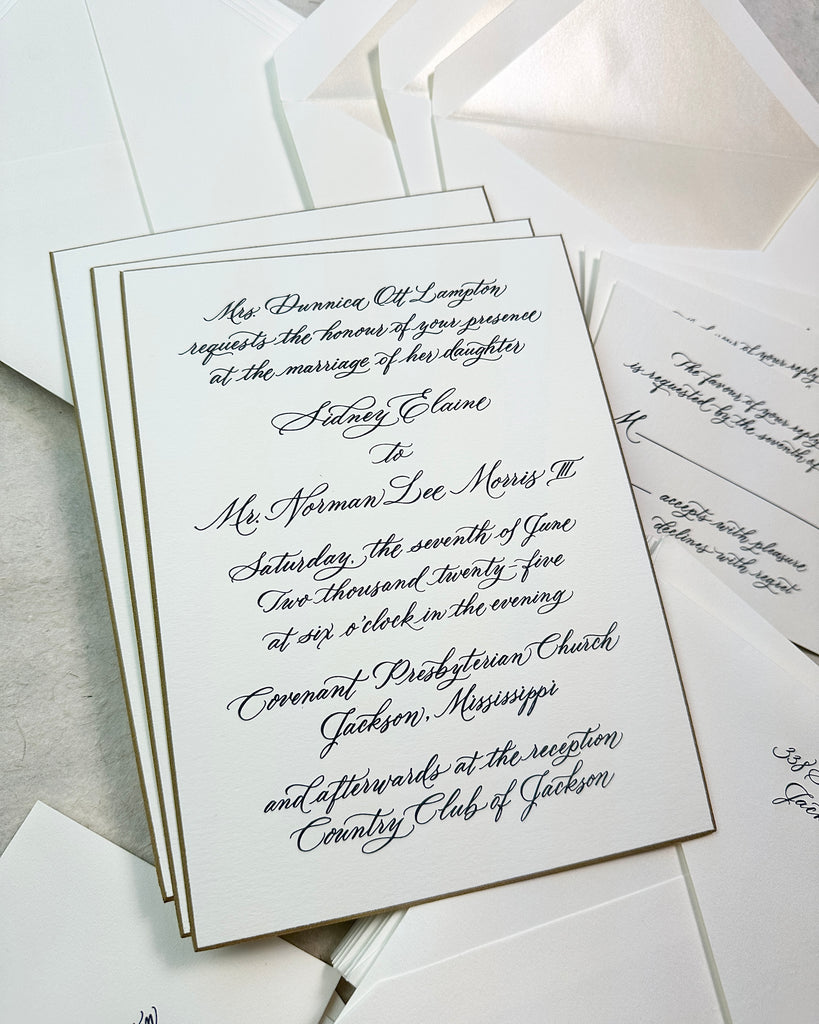 Mrs. Dunnica Ott Lampton
requests the honour of your presence
at the marriage of her daughter
Sidney Elaine
to
Mr. Norman Lee Morris III
Saturday, the seventh of June
Two thousand twenty-five
at six o'clock in the evening
Covenant Presbyterian Church
Jackson, Mississippi
and afterwards at the reception
Country Club of Jackson
of your reply
The favour of your reply
is requested by the seventh of
M
accepts with pleasure
declines with regret
338